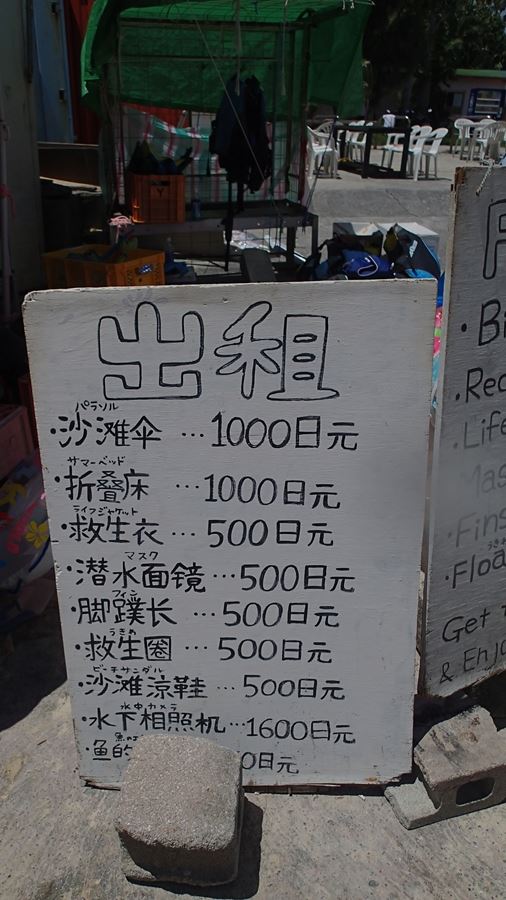 出租
パラソル
・沙滩伞 …1000日元
サマーベッド
・折叠床 …1000日元
ライフジャケット
・救生衣 …500日元
マスク
・潜水面镜…500日元
フィン
・脚蹼长 …500日元
うきわ
・救生圈 …500日元
ビーチサンダル
・沙滩涼鞋 …500日元
水中カメラ
・水下相照机…1600日元
・鱼的 0日元
・Bi
・Rec
・Life
・Mas
・Fins
うきわ
・Floa
Get
& Enj